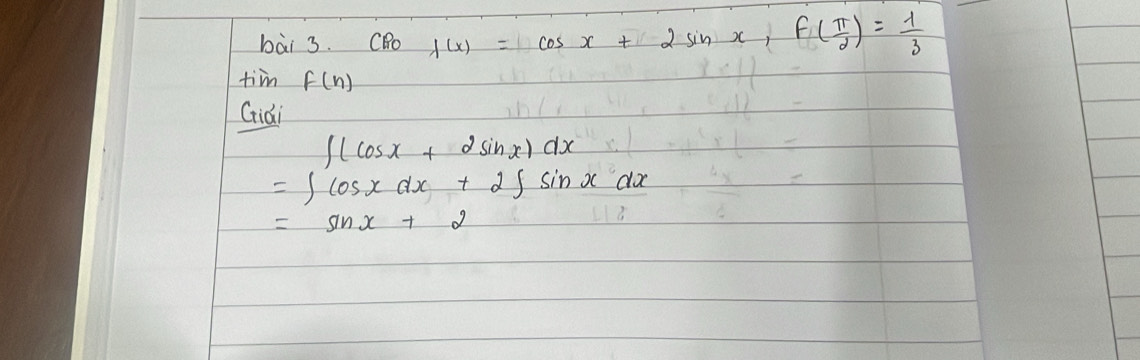 bài 3. Cho f(x) = cos x + 2 sin x, F(π/2) = 1/3
tìm F(x)
Giải
∫(cosx + 2sinx) dx
= ∫ cosx dx + 2∫ sin x dx
= sinx + 2